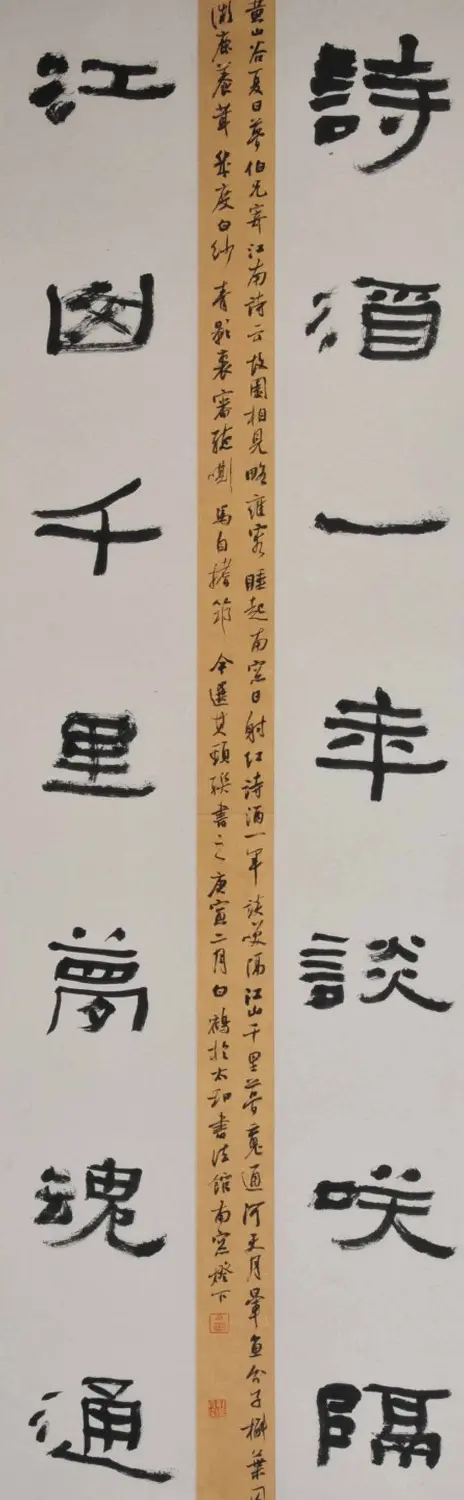 詩酒一年談咲隔
黄山谷夏日夢伯兄寄江南詩云故園相見略雍容睡起南窓日射紅詩酒一年談笑隔江山千里夢魂通河天月暈魚分子槲葉風
微鹿養茸幾度白紗青影裏審聽嘶馬自搘筇今選其頸聯書之庚寅二月白鶴於太和書法館南窓燈下
江山千里夢魂通